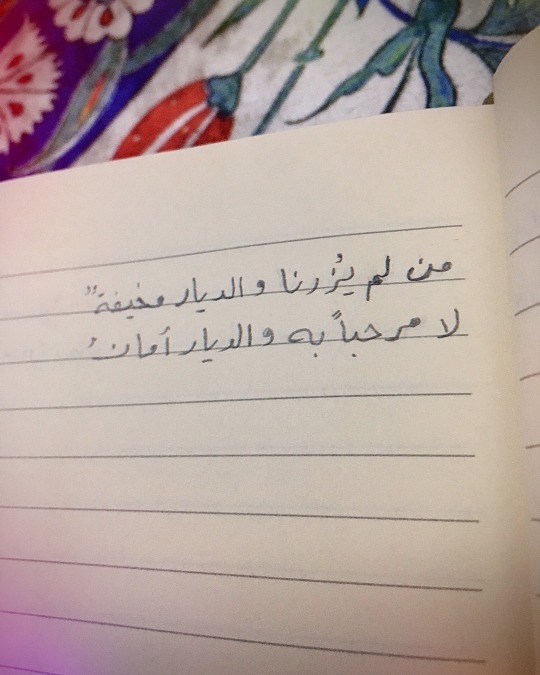 من لم يُزرنا والديار مخيفةٌ
لا مرحباً به والديار أمانُ